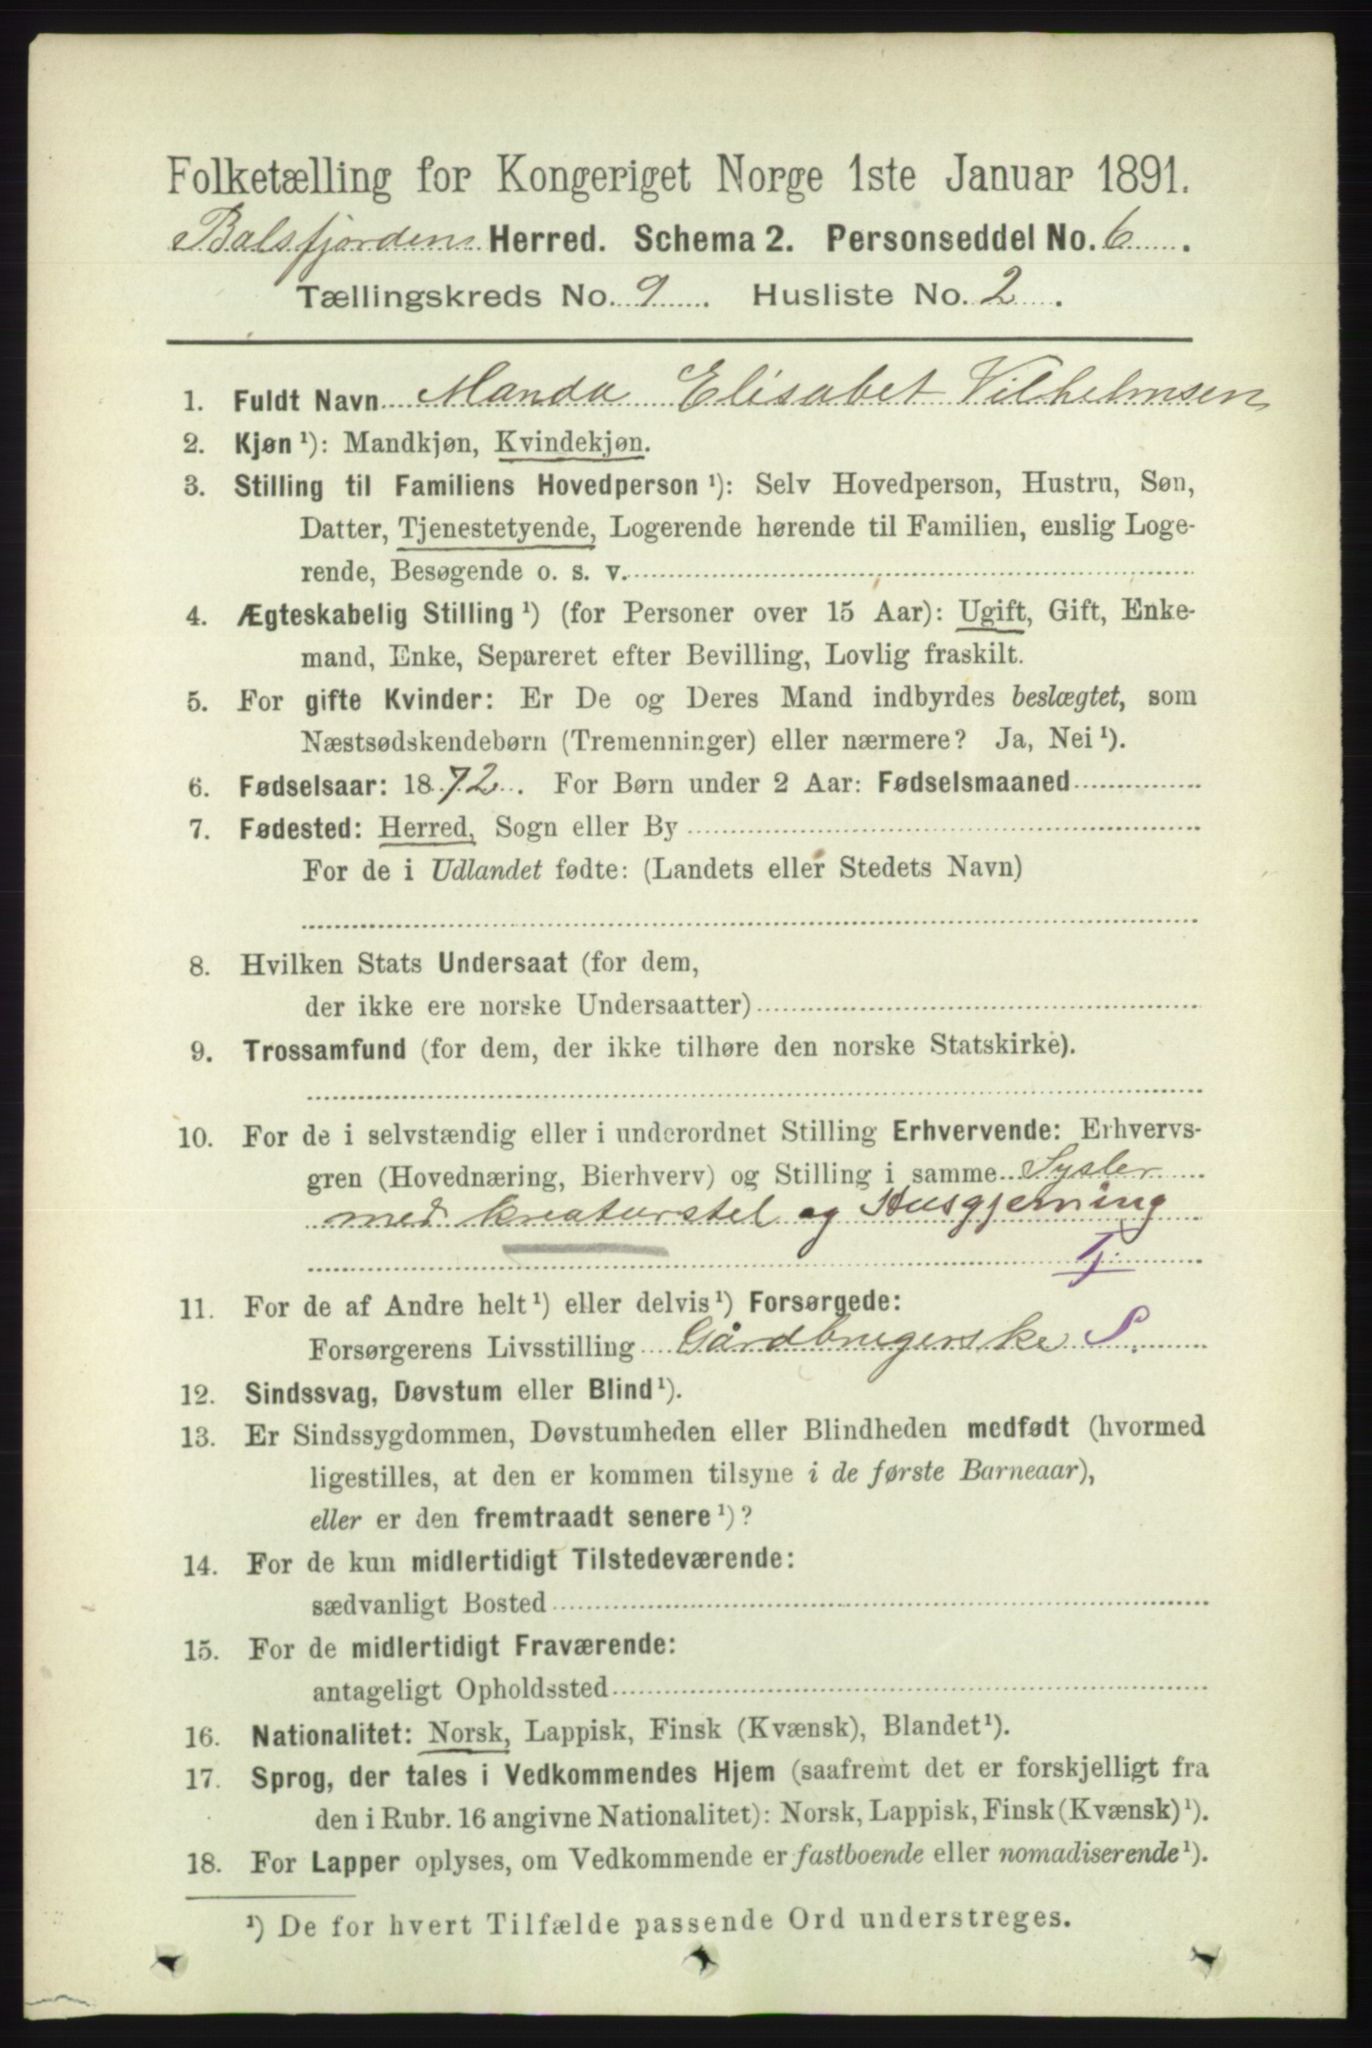 Folketælling for Kongeriget Norge 1ste Januar 1891.
Balsfjorden Herred. Schema 2. Personseddel No. 6
Tællingskreds No. 9. Husliste No. 2.
1. Fuldt Navn Manda Elisabet Vilhelmsen
2. Kjøn ¹): Mandkjøn, Kvindekjøn.
3. Stilling til Familiens Hovedperson ¹): Selv Hovedperson, Hustru, Søn,
Datter, Tjenestetyende, Logerende hørende til Familien, enslig Loge-
rende, Besøgende o. s. v.
4. Ægteskabelig Stilling ¹) (for Personer over 15 Aar): Ugift, Gift, Enke-
mand, Enke, Separeret efter Bevilling, Lovlig fraskilt.
5. For gifte Kvinder: Er De og Deres Mand indbyrdes beslægtet, som
Næstsødskendebørn (Tremenninger) eller nærmere? Ja, Nei ¹).
6. Fødselsaar: 1872. For Børn under 2 Aar: Fødselsmaaned
7. Fødested: Herred, Sogn eller By
For de i Udlandet fødte: (Landets eller Stedets Navn)
8. Hvilken Stats Undersaat (for dem,
der ikke ere norske Undersaatter)
9. Trossamfund (for dem, der ikke tilhøre den norske Statskirke).
10. For de i selvstændig eller i underordnet Stilling Erhvervende: Erhvervs-
gren (Hovednæring, Bierhverv) og Stilling i samme Sysler
med kreaturstel og Husgjerning
Tj.
11. For de af Andre helt ¹) eller delvis ¹) Forsørgede:
Forsørgerens Livsstilling Gårdbrugerske S.
12. Sindssvag, Døvstum eller Blind ¹).
13. Er Sindssygdommen, Døvstumheden eller Blindheden medfødt (hvormed
ligestilles, at den er kommen tilsyne i de første Barneaar),
eller er den fremtraadt senere ¹)?
14. For de kun midlertidigt Tilstedeværende:
sædvanligt Bosted
15. For de midlertidigt Fraværende:
antageligt Opholdssted
16. Nationalitet: Norsk, Lappisk, Finsk (Kvænsk), Blandet ¹).
17. Sprog, der tales i Vedkommendes Hjem (saafremt det er forskjelligt fra
den i Rubr. 16 angivne Nationalitet): Norsk, Lappisk, Finsk (Kvænsk) ¹).
18. For Lapper oplyses, om Vedkommende er fastboende eller nomadiserende ¹).
¹) De for hvert Tilfælde passende Ord understreges.